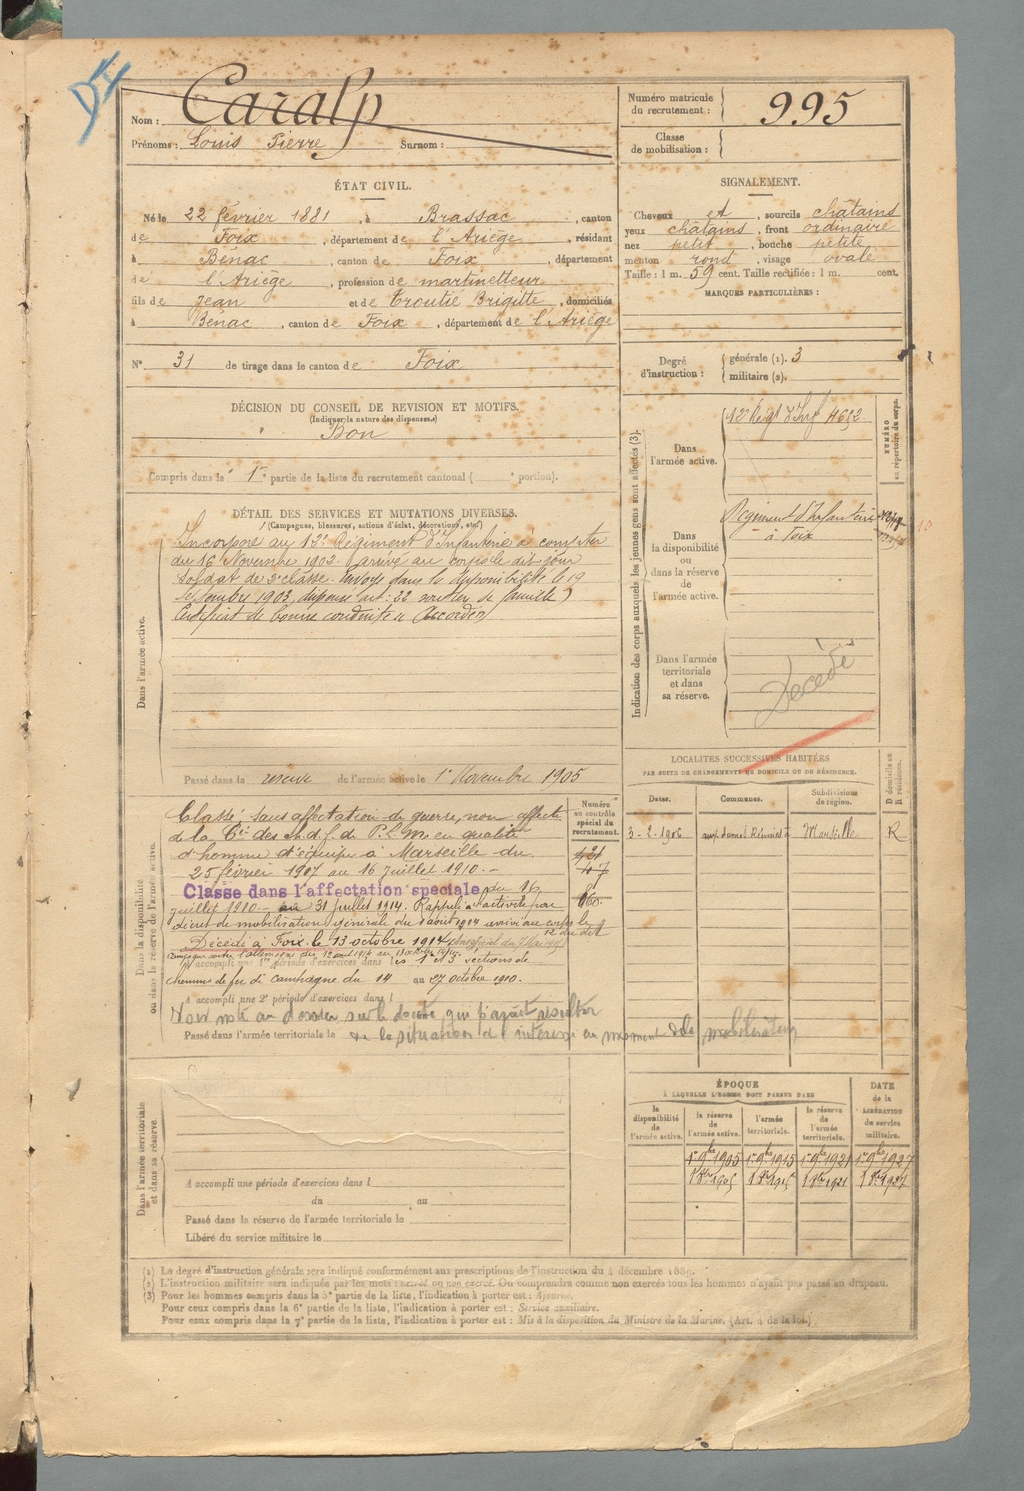 DI
Nom : Caralp
Prénoms : Louis Pierre Surnom :
Numéro matricule du recrutement : 995
Classe de mobilisation :
ÉTAT CIVIL.
Né le 22 février 1881, à Brassac, canton
de Foix, département de l'Ariège, résidant
à Bénac, canton de Foix, département
de l'Ariège, profession de martinetteur
fils de Jean et de Troutié Brigitte, domiciliés
à Bénac, canton de Foix, département de l'Ariège
N° 31 de tirage dans le canton de Foix
SIGNALEMENT.
Cheveux et, sourcils châtains
yeux châtains, front ordinaire
nez petit, bouche petite
menton rond, visage ovale
Taille : 1 m. 59 cent. Taille rectifiée : 1 m. cent.
MARQUES PARTICULIÈRES :
Degré d'instruction : générale (1). 3
militaire (2).
DÉCISION DU CONSEIL DE REVISION ET MOTIFS.
(Indiquer la nature des dispenses.)
Bon
Compris dans la 1re partie de la liste du recrutement cantonal ( e portion).
DÉTAIL DES SERVICES ET MUTATIONS DIVERSES.
(Campagnes, blessures, actions d'éclat, décorations, etc.)
Dans l'armée active.
Incorporé au 12e Régiment d'Infanterie à compter
du 16 Novembre 1902. Arrivé au corps le dit jour
Soldat de 2e classe. Envoyé dans la disponibilité le 19
Septembre 1903, dispensé art: 22 soutien de famille
Certificat de bonne conduite "Accordé"
Passé dans la réserve de l'armée active le 1er Novembre 1905
Indication des corps auxquels les jeunes gens sont affectés (3).
NUMÉRO au répertoire du corps.
Dans l'armée active.
12e Régt d'Inf 4652
Dans la disponibilité ou dans la réserve de l'armée active.
Régiment d'Infanterie
à Foix
10
Dans l'armée territoriale et dans sa réserve.
Décédé
LOCALITÉS SUCCESSIVES HABITÉES
PAR SUITE DE CHANGEMENTS DE DOMICILE OU DE RÉSIDENCE.
Dates. Communes. Subdivisions de région. D domicile ou R résidence.
3-2-1906 Marseille R
Dans la disponibilité ou dans la réserve de l'armée active.
Numéro au contrôle spécial du recrutement.
421
47
160
Classé sans affectation de guerre, non affecté
de la Cie des ch. d. f. de P.L.M. en qualité
d'homme d'équipe à Marseille du
25 février 1907 au 16 juillet 1910.-
Classé dans l'affectation spéciale du 16
juillet 1910.- au 31 juillet 1914. Rappelé à l'activité par
décret de mobilisation générale du 1 août 1914 arrivé au corps le
12 du dit
Décédé à Foix le 13 octobre 1914
Campagne contre l'Allemagne du 12 août 1914 au 13 octobre 1914
A accompli une 1re période d'exercices dans les 1 et 3 sections de
chemins de fer de campagne du 14 au 27 octobre 1910.
A accompli une 2e période d'exercices dans l
Passé dans l'armée territoriale le
de la situation de l'intéressé au moment de la mobilisation
Dans l'armée territoriale et dans sa réserve.
A accompli une période d'exercices dans l
du au
Passé dans la réserve de l'armée territoriale le
Libéré du service militaire le
ÉPOQUE
À LAQUELLE L'HOMME DOIT PASSER DANS
la disponibilité de l'armée active. la réserve de l'armée active. l'armée territoriale. la réserve de l'armée territoriale.
DATE de la LIBÉRATION du service militaire.
1er 9bre 1905 1er 9bre 1915 1er 9bre 1921 1er 9bre 1927
(1) Le degré d'instruction générale sera indiqué conformément aux prescriptions de l'instruction du 4 décembre 1889.
(2) L'instruction militaire sera indiquée par les mots : exercé ou non exercé. On comprendra comme non exercés tous les hommes n'ayant pas passé au drapeau.
(3) Pour les hommes compris dans la 5e partie de la liste, l'indication à porter est : Ajourné.
Pour ceux compris dans la 6e partie de la liste, l'indication à porter est : Service auxiliaire.
Pour ceux compris dans la 7e partie de la liste, l'indication à porter est : Mis à la disposition du Ministre de la Marine. (Art. 4 de la loi.)